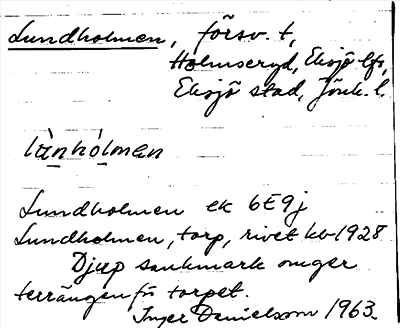 Lundholmen, försv. t,
Holmseryd, Eksjö lfs,
Eksjö stad, Jönk. l.
lùnhólmen
Lundholmen ek 6E9j
Lundholmen, torp, rivet kb 1928
Djup sankmark omger
terrängen för torpet.
Inger Danielsson 1963.